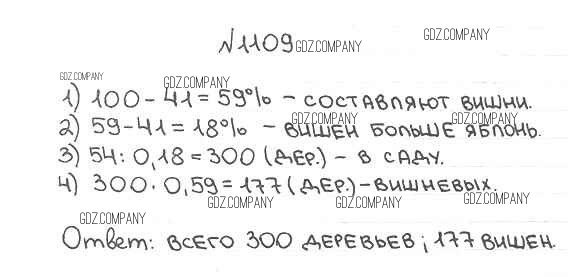 №1109
GDZ.COMPANY
GDZ.COMPANY
GDZ.COMPANY
GDZ.COMPANY
1) 100 - 41 = 59% - составляют вишни.
GDZ.COMPANY
GDZ.COMPANY
2) 59 - 41 = 18% - вишен больше яблонь.
3) 54 : 0,18 = 300 (дер.) - в саду.
4) 300 · 0,59 = 177 (дер.) - вишневых.
GDZ.COMPANY
GDZ.COMPANY
GDZ.COMPANY
GDZ.COMPANY
Ответ: всего 300 деревьев; 177 вишен.